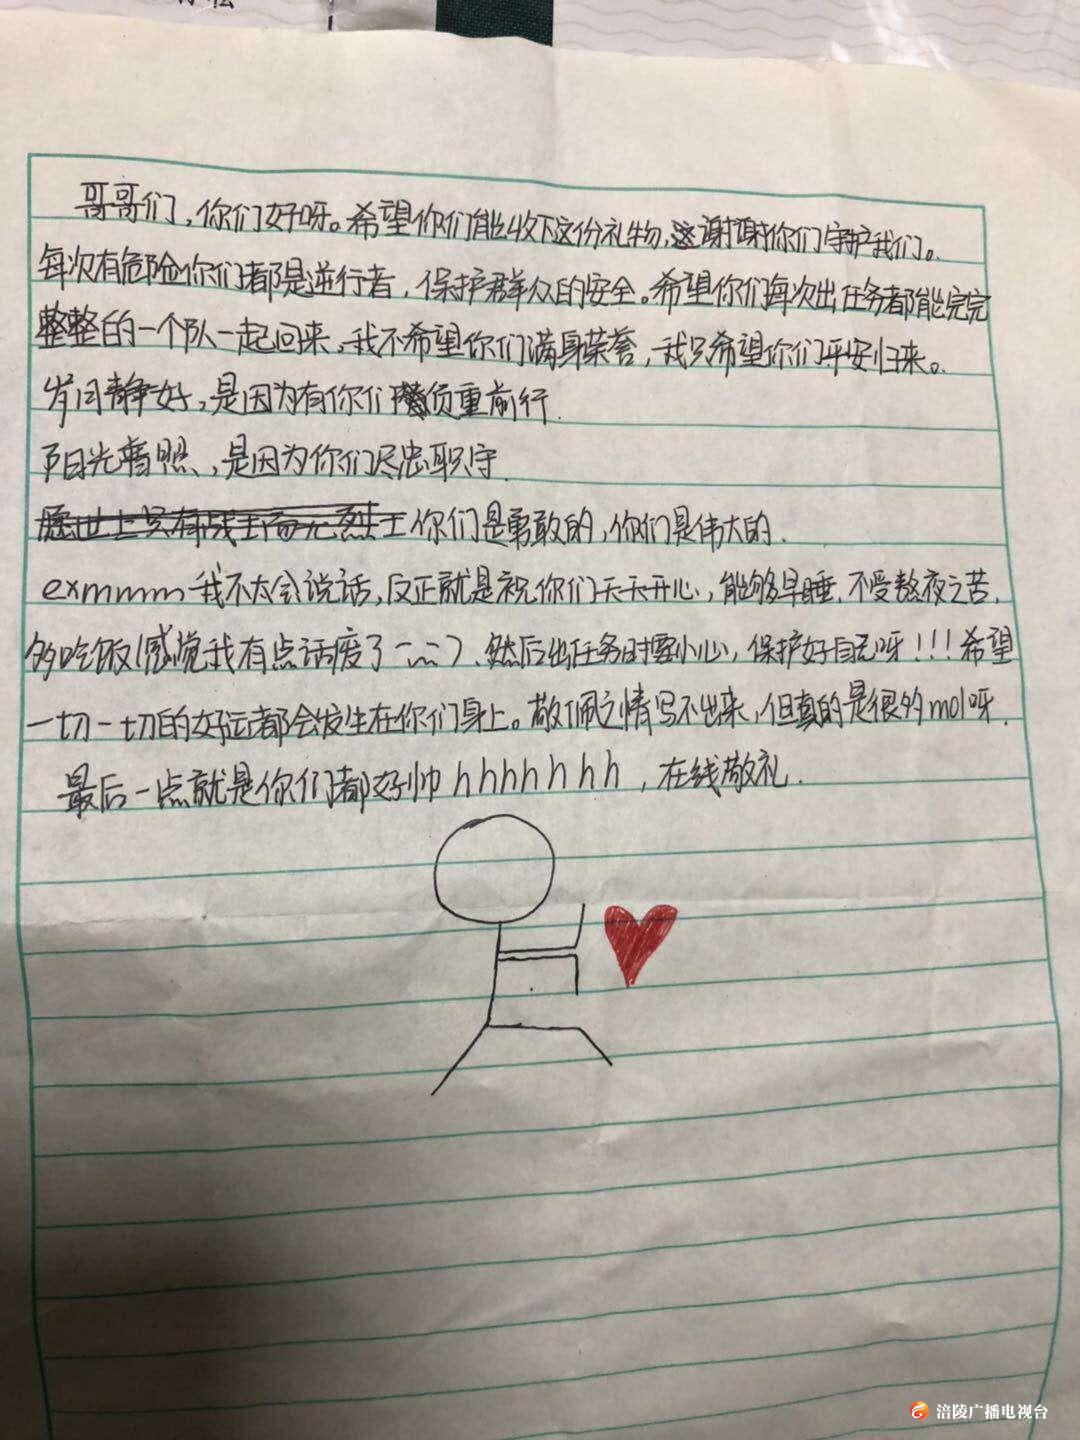 哥哥们，你们好呀。希望你们能收下这份礼物，谢谢你们守护我们。
每次有危险你们都是逆行者，保护群众的安全。希望你们每次出任务都能完完
整整的一个队一起回来，我不希望你们满身荣誉，我只希望你们平安归来。
岁月静好，是因为有你们负重前行.
阳光普照，是因为你们尽忠职守.
愿世上只有战士而无烈士你们是勇敢的，你们是伟大的.
exmmmm我不太会说话，反正就是祝你们天天开心，能够早睡.不受熬夜之苦.
多吃饭(感觉我有点话废了-_-).然后出任务时要小心，保护好自己呀!!!希望
一切一切的好运都会发生在你们身上。敬佩之情写不出来，但真的是很多mol呀.
最后一点就是你们都好帅hhhhhhh，在线敬礼.
涪陵广播电视台